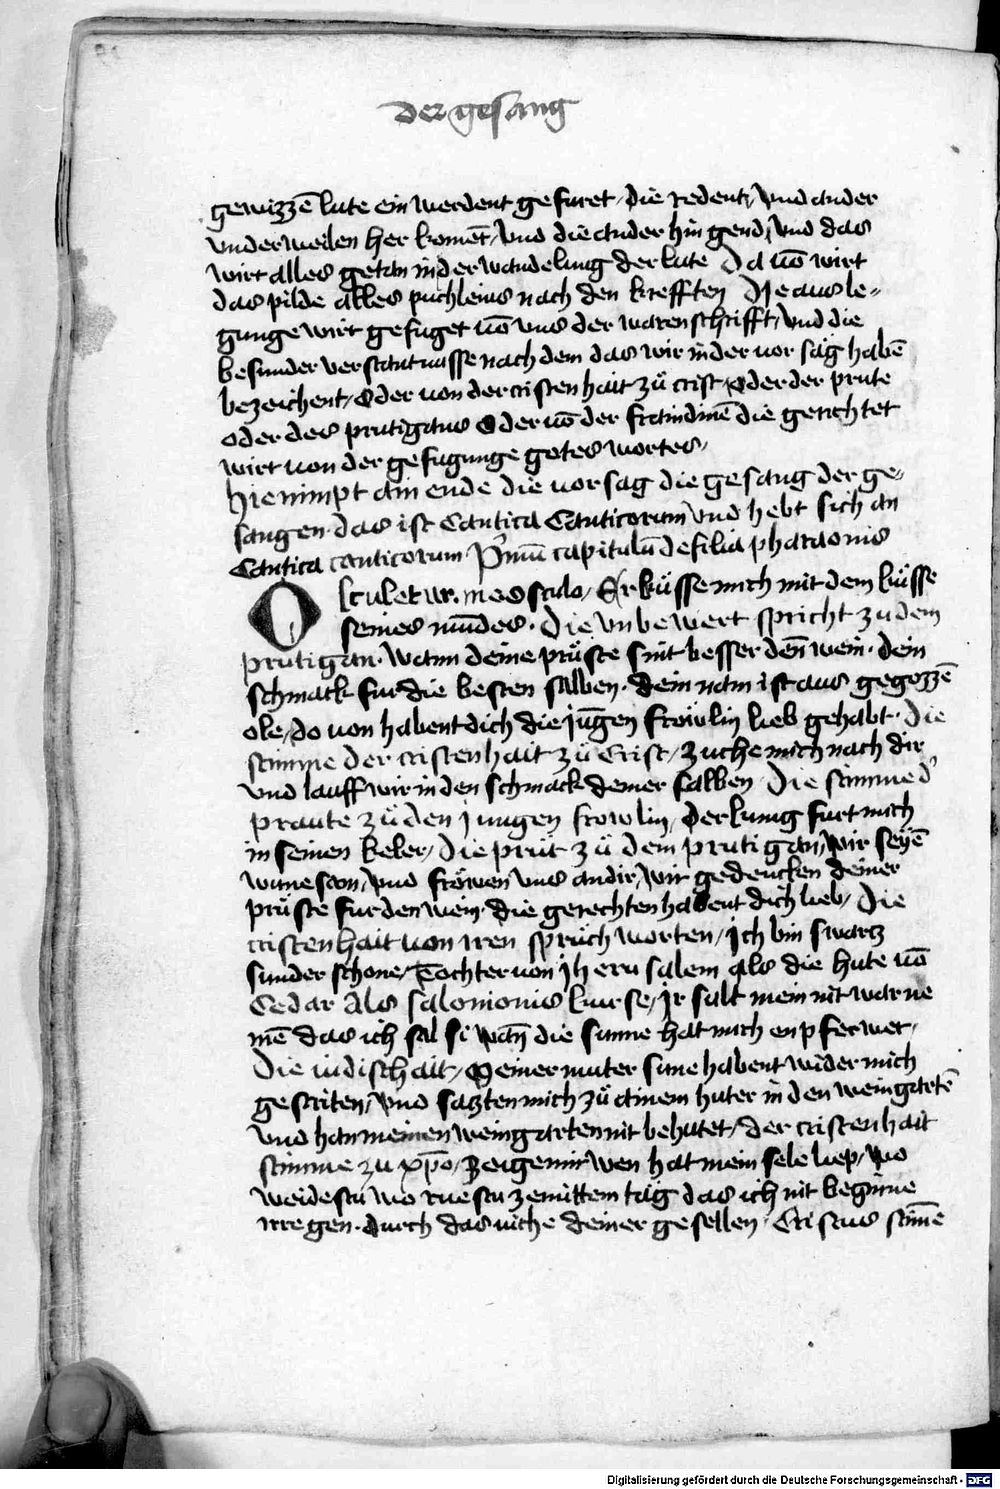 der gesang
gewizzē lute ein werdent gefuret / die redent / vnd ander
vnderweilen her komēt / vnd die ander hin gend / vnd das
wirt alles getan in der wandelung der lute Da vō wirt
das pilde alles puchleins nach den krefften Die ausle„
gunge wirt gefuget vō vns der waren schrifft / vnd die
besunder verstantnusse nach dem das wir in der vor sag habē
bezeichent / Oder von der cristenhait zů crist / Oder der prute
oder des prutigans Oder vō der fraindinē die gerichtet
wirt von der gefugunge gotes wortes /
hie nimpt ain ende die vorsag die gesang der ge„
sangen · das ist Cantica Canticorum vnd hebt sich an
Cantica canticorum Pͥmū capitulū de filia pharaonis
Osculetur me osculo / Er küsse mich mit dem küsse
seines mūdes · Die vnbewert spricht zu dem
prutigan · wann deine prüste sint besser deñ wein · dein
schmack fur die besten salben · dein nam ist aus gegozzē
ole / do von habent dich die jūgen fröwlin lieb gehabt · Die
stimme der cristenhait zů Crist / zuche mich nach dir
vnd lauff wir in den schmack deiner salben · Die stimme dˀ
praute zů den jungen frowlin / der kunig furt mich
in seinen keler / Die prüt zů dem prutigan / wir seyē
wunescon / vnd fröwen vns an dir / wir gedencken deiner
prüste fur den wein · die gerechten habent dich lieb / Die
cristenhait von iren sprůchworten / Ich bin swartz
sunder schone / Tochter von jherusalem als die hute vō
Cedar Als salomonis kurse / Ir sult mein nit warne
mē das ich sal si wañ die sunne hat mich enpferwet /
Die iudischait / Meiner muter sune habent wider mich
gestriten / vnd satzten mich zů ainem huter in den weingartē
vnd han meinen weingarten nit behutet / der cristenhait
stimme zu xp̄o / Zeige mir wen hat mein sele liep / wo
weidestu wo ruestu ze mittem tag das ich nit beginne
irregen · durch das viche deiner gesellen / Cristus stimē
Digitalisierung gefördert durch die Deutsche Forschungsgemeinschaft - DFG